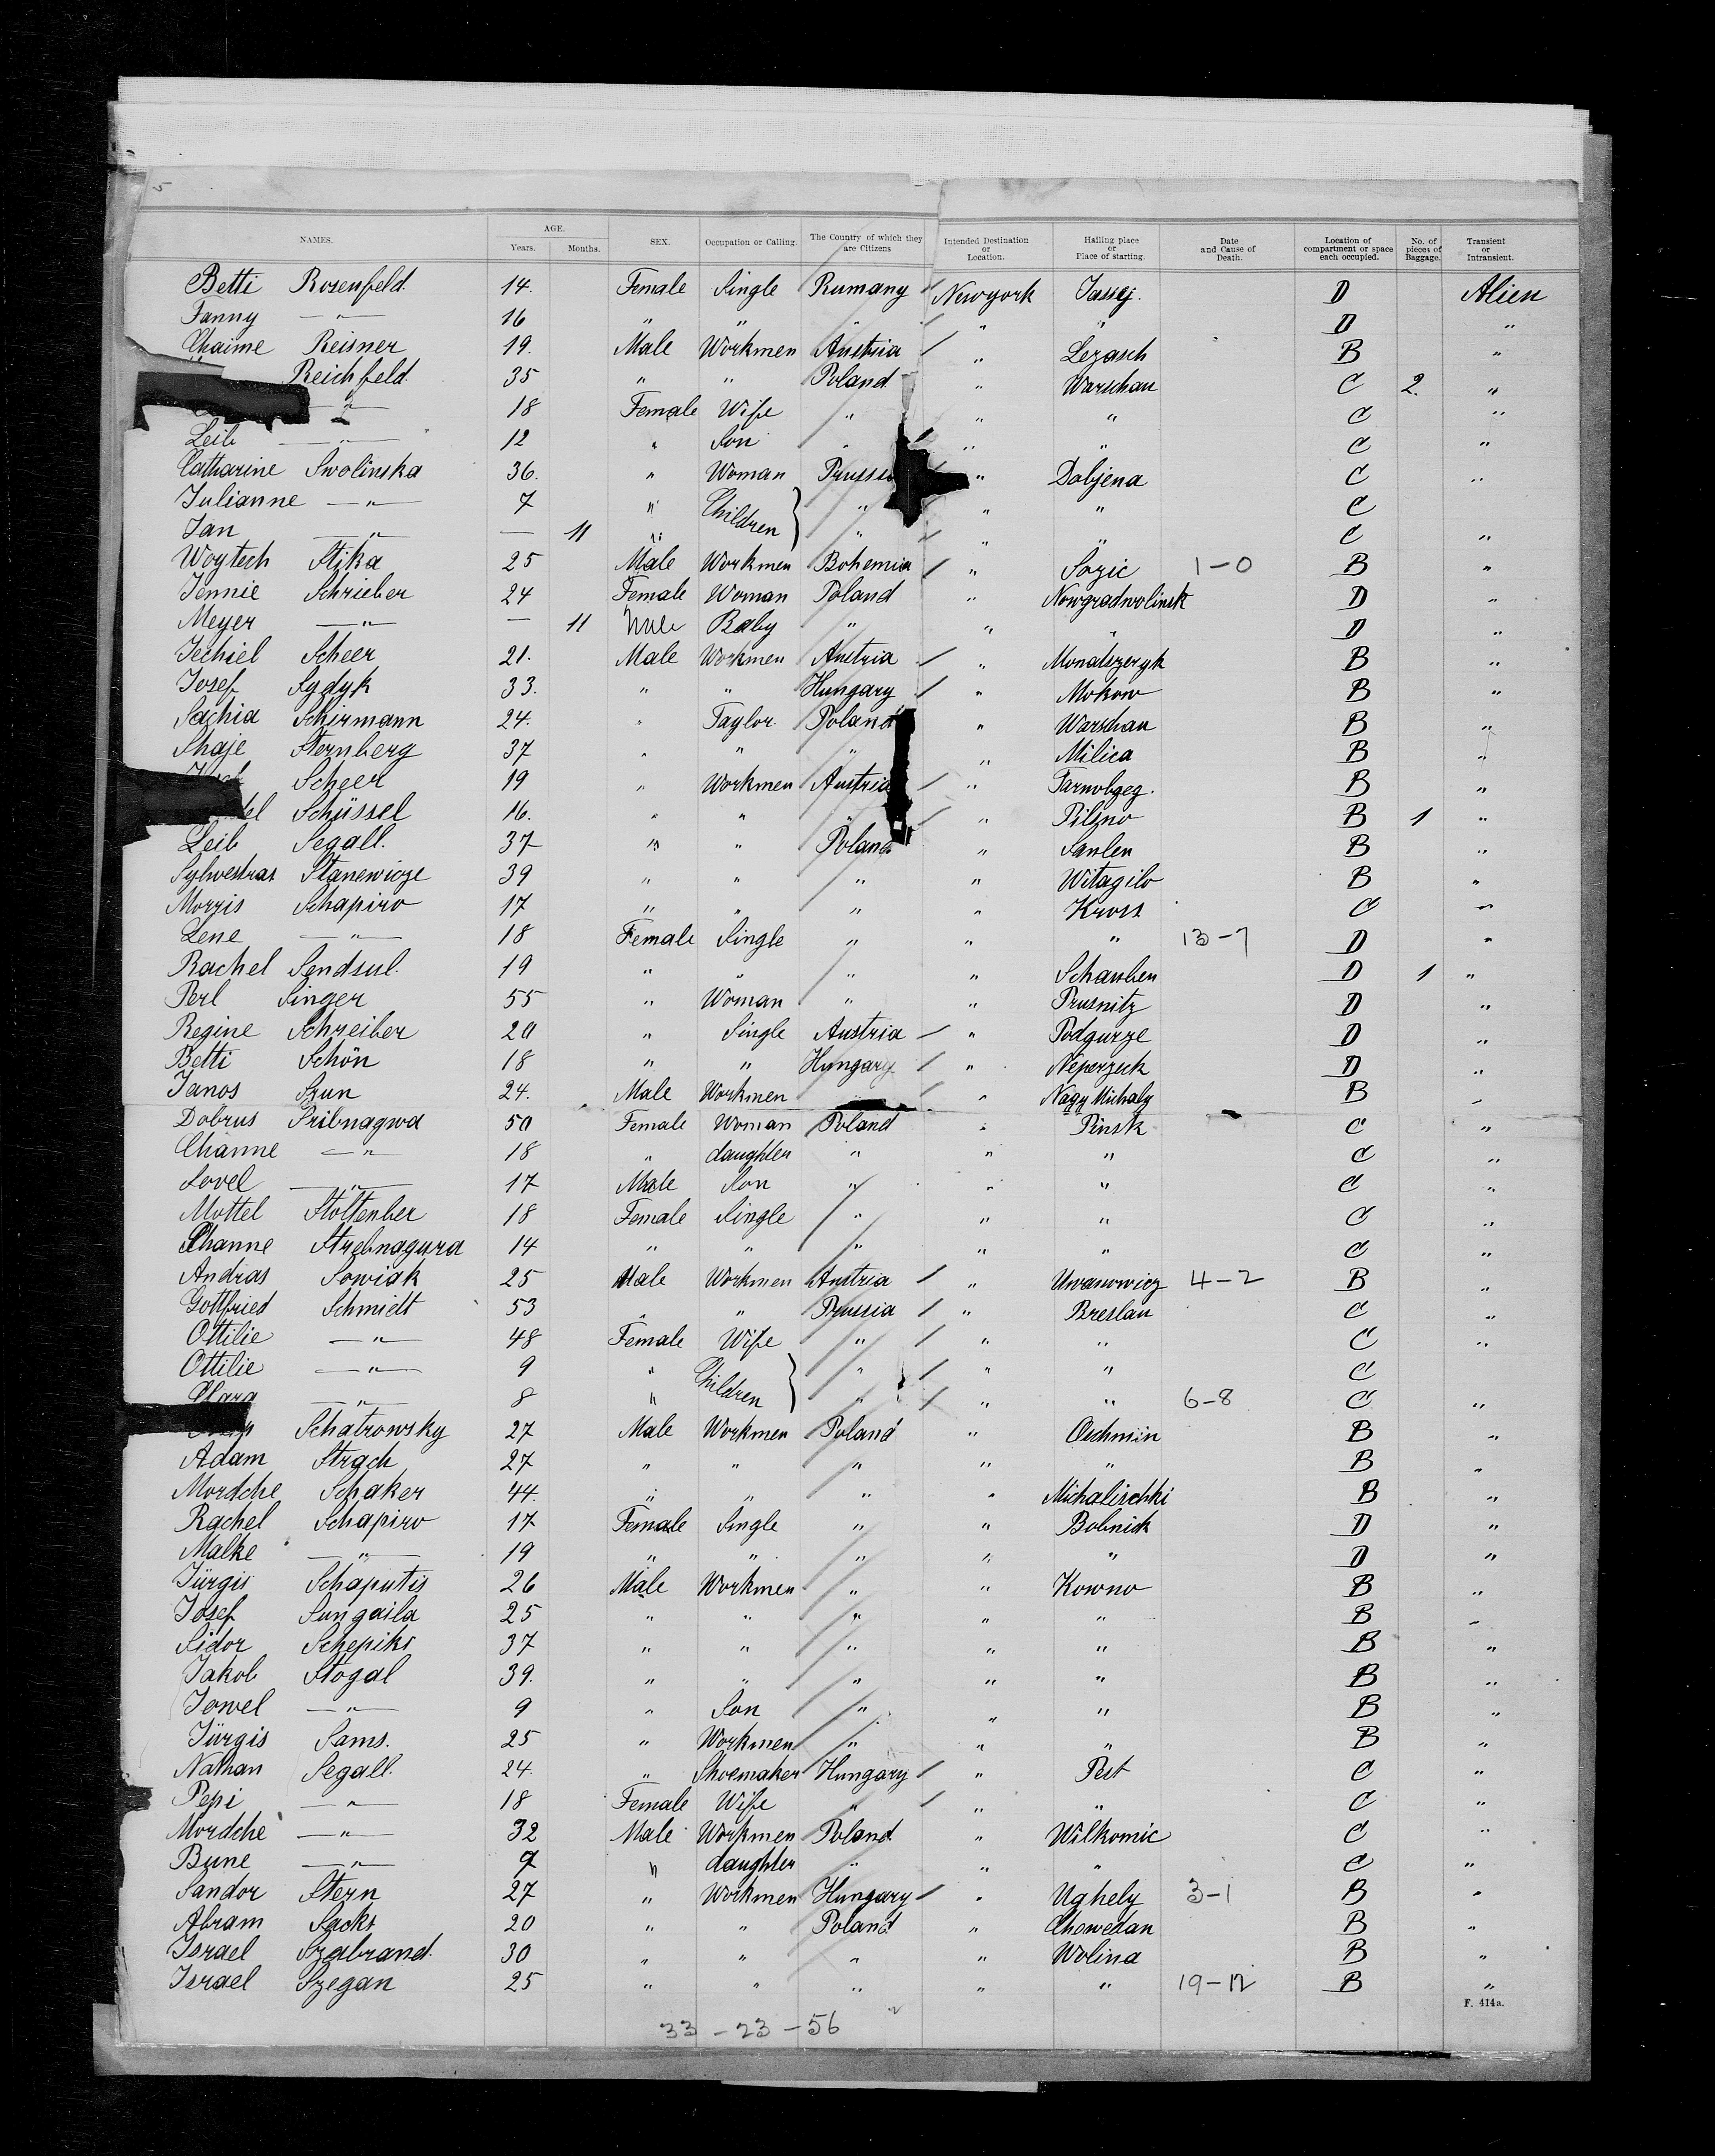 NAMES. AGE. Years. Months. SEX. Occupation or Calling. The Country of which they are Citizens Intended Destination or Location. Hailing place or Place of starting. Date and Cause of Death. Location of compartment or space each occupied. No. of pieces of Baggage. Transient or Intransient.
Betti Rosenfeld 14. Female Single Rumany Newyork Jassy. D Alien
Fanny —"— 16 " " " " " D "
Chaime Reisner 19. Male Workmen Austria " Lezasch B "
Reichfeld. 35 " " Poland " Warschau C 2. "
—"— 18 Female Wife " " " C "
Leib —"— 12 " Son " " " C "
Catharine Swolinska 36. " Woman " Dobjena C "
Julianne —"— 7 " Children } " " " C
Jan —"— — 11 " " " " C "
Woytech Stika 25 Male Workmen Bohemia " Sozic 1-0 B "
Jennie Schrieber 24 Female Woman Poland " Nowgradwolinsk D "
Meyer —"— — 11 Baby " " " D "
Jechiel Scheer 21. Male Workmen Austria " Monatszergk B "
Josef Sydyk 33. " " Hungary " Mokow B "
Sachia Schirmann 24. " Taylor Poland " Warschau B "
Shaje Sternberg 37 " " " " Milica B "
Scheer 19 " Workmen Austria " Tarnobgeg. B "
Schüssel 16. " " " " Pilzno B 1 "
Leib Segall. 37 " " Poland " Saulen B "
Sylwestras Stanewicze 39 " " " " Witagilo B "
Morris Schapiro 17 " " " " Kross C "
Lene —"— 18 Female Single " " " 13-7 D "
Rachel Sendsul. 19 " " " " Schaulen D 1 "
Perl Singer 55 " Woman " " Prusnitz D "
Regine Schreiber 20 " Single Austria " Podgurze D "
Betti Schön 18 " " Hungary " Neperzeck D "
Janos Szun 24. Male Workmen " Nagy Michaly B "
Dobrus Sribnagwa 50 Female Woman Poland " Pinsk C "
Channe —"— 18 " daughter " " " C "
Sovel —"— 17 Male Son " " " C "
Mottel Stoltenber 18 Female Single " " " C "
Channe Strebnagura 14 " " " " " C "
Andras Sowiak 25 Male Workmen Austria " Uwanowicz 4-2 B "
Gottfried Schmidt 53 " " Prussia " Breslau C "
Ottilie —"— 48 Female Wife " " " C "
Ottilie —"— 9 " Children } " " " C
Clara —"— 8 " " " " 6-8 C "
Schatrowsky 27 Male Workmen Poland " Oschmün B "
Adam Strach 27 " " " " " B "
Mordche Schaker 44. " " " " Michalischki B "
Rachel Schapiro 17 Female Single " " Bobnick D "
Malke —"— 19 " " " " " D "
Jürgis Schaputis 26 Male Workmen " " Kowno B "
Josef Sungaila 25 " " " " " B "
Sidor Schepiks 37 " " " " " B "
Jakob Stogal 39. " " " " " B "
Jowel —"— 9 " Son " " " B "
Jürgis Sams. 25 " Workmen " " " B "
Nathan Segall. 24. " Shoemaker Hungary " Pest C "
Pepi —"— 18 Female Wife " " " C "
Mordche —"— 32 Male Workmen Poland " Wilkomic C "
Bune —"— 9 " daughter " " " C "
Sandor Stern 27 " Workmen Hungary " Ughely 3-1 B "
Abram Sacks 20 " " Poland " Chowedan B "
Israel Szabrand. 30 " " " " Wolina B "
Israel Szegan 25 " " " " " 19-12 B "
F. 414a.
33-23-56